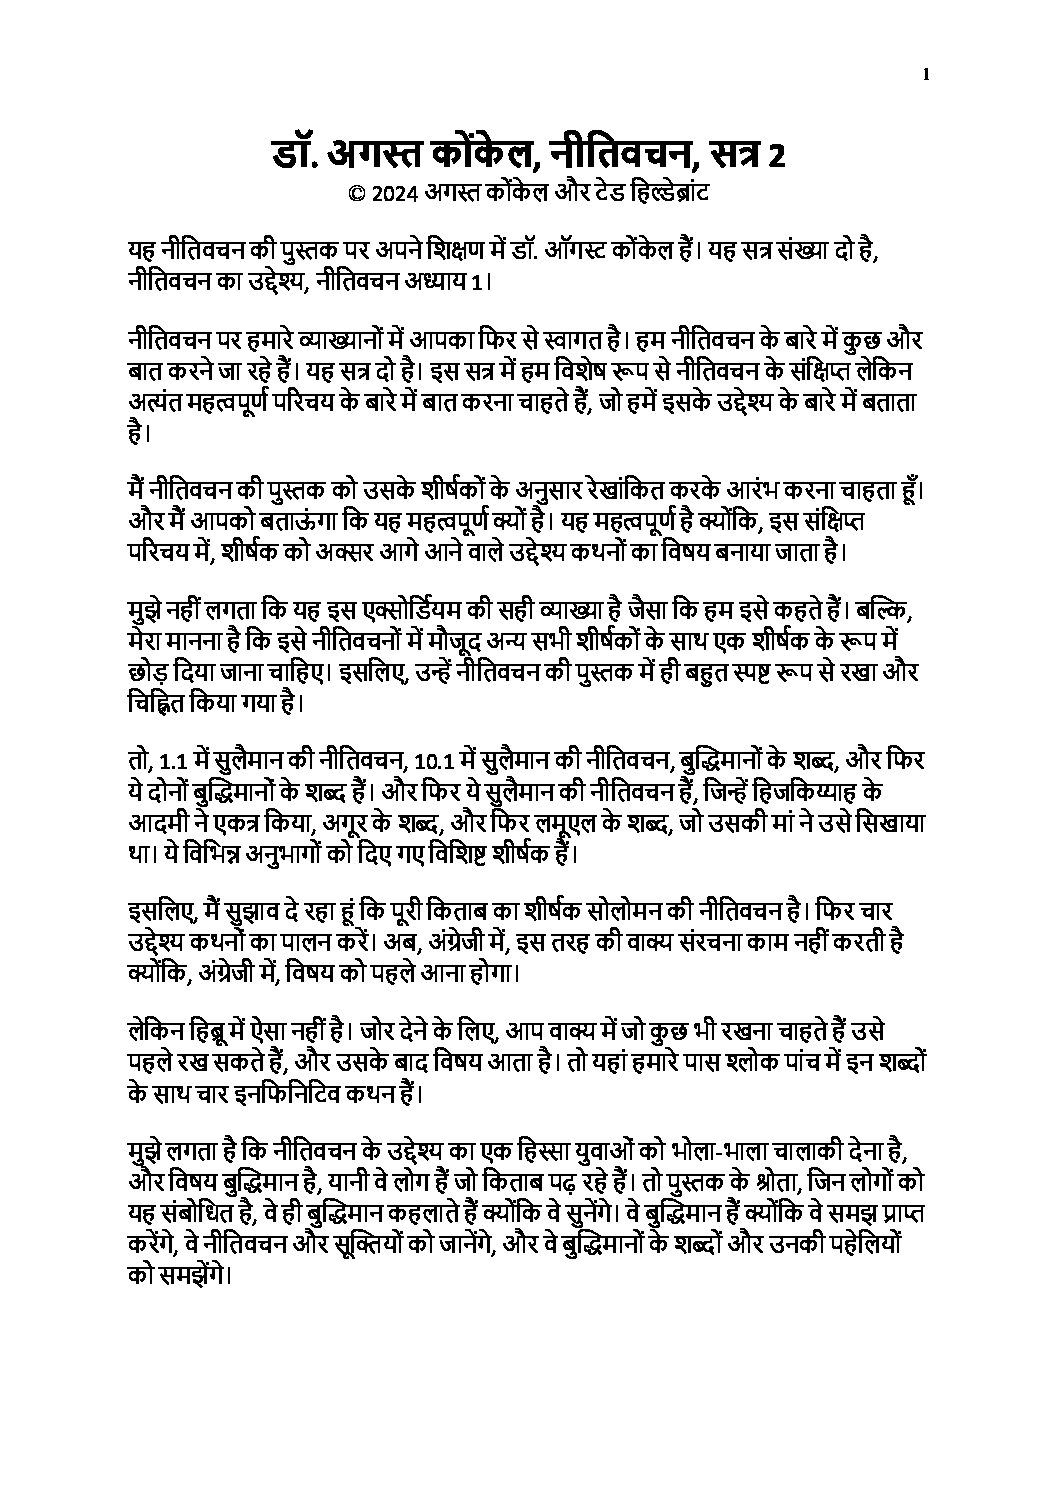 1
डॉ. अगस्त कोंकेल, नीतिवचन, सत्र 2
© 2024 अगस्त कोंकेल और टेड हिल्डेब्रांट
यह नीतिवचन की पुस्तक पर अपने शिक्षण में डॉ. ऑगस्ट कोंकेल हैं। यह सत्र संख्या दो है,
नीतिवचन का उद्देश्य, नीतिवचन अध्याय 1।
नीतिवचन पर हमारे व्याख्यानों में आपका फिर से स्वागत है। हम नीतिवचन के बारे में कुछ और
बात करने जा रहे हैं। यह सत्र दो है। इस सत्र में हम विशेष रूप से नीतिवचन के संक्षिप्त लेकिन
अत्यंत महत्वपूर्ण परिचय के बारे में बात करना चाहते हैं, जो हमें इसके उद्देश्य के बारे में बताता
है।
मैं नीतिवचन की पुस्तक को उसके शीर्षकों के अनुसार रेखांकित करके आरंभ करना चाहता हूँ।
और मैं आपको बताऊंगा कि यह महत्वपूर्ण क्यों है। यह महत्वपूर्ण है क्योंकि, इस संक्षिप्त
परिचय में, शीर्षक को अक्सर आगे आने वाले उद्देश्य कथनों का विषय बनाया जाता है।
मुझे नहीं लगता कि यह इस एक्सोर्डियम की सही व्याख्या है जैसा कि हम इसे कहते हैं। बल्कि,
मेरा मानना है कि इसे नीतिवचनों में मौजूद अन्य सभी शीर्षकों के साथ एक शीर्षक के रूप में
छोड़ दिया जाना चाहिए। इसलिए, उन्हें नीतिवचन की पुस्तक में ही बहुत स्पष्ट रूप से रखा और
चिह्नित किया गया है।
तो, 1.1 में सुलैमान की नीतिवचन, 10.1 में सुलैमान की नीतिवचन, बुद्धिमानों के शब्द, और फिर
ये दोनों बुद्धिमानों के शब्द हैं। और फिर ये सुलैमान की नीतिवचन हैं, जिन्हें हिजकिय्याह के
आदमी ने एकत्र किया, अगूर के शब्द, और फिर लमूएल के शब्द, जो उसकी मां ने उसे सिखाया
था। ये विभिन्न अनुभागों को दिए गए विशिष्ट शीर्षक हैं।
इसलिए, मैं सुझाव दे रहा हूं कि पूरी किताब का शीर्षक सोलोमन की नीतिवचन है। फिर चार
उद्देश्य कथनों का पालन करें। अब, अंग्रेजी में, इस तरह की वाक्य संरचना काम नहीं करती है
क्योंकि, अंग्रेजी में, विषय को पहले आना होगा।
लेकिन हिब्रू में ऐसा नहीं है। जोर देने के लिए, आप वाक्य में जो कुछ भी रखना चाहते हैं उसे
पहले रख सकते हैं, और उसके बाद विषय आता है। तो यहां हमारे पास श्लोक पांच में इन शब्दों
के साथ चार इनफिनिटिव कथन हैं।
मुझे लगता है कि नीतिवचन के उद्देश्य का एक हिस्सा युवाओं को भोला-भाला चालाकी देना है,
और विषय बुद्धिमान है, यानी वे लोग हैं जो किताब पढ़ रहे हैं। तो पुस्तक के श्रोता, जिन लोगों को
यह संबोधित है, वे ही बुद्धिमान कहलाते हैं क्योंकि वे सुनेंगे। वे बुद्धिमान हैं क्योंकि वे समझ प्राप्त
करेंगे, वे नीतिवचन और सूक्तियों को जानेंगे, और वे बुद्धिमानों के शब्दों और उनकी पहेलियों
को समझेंगे।